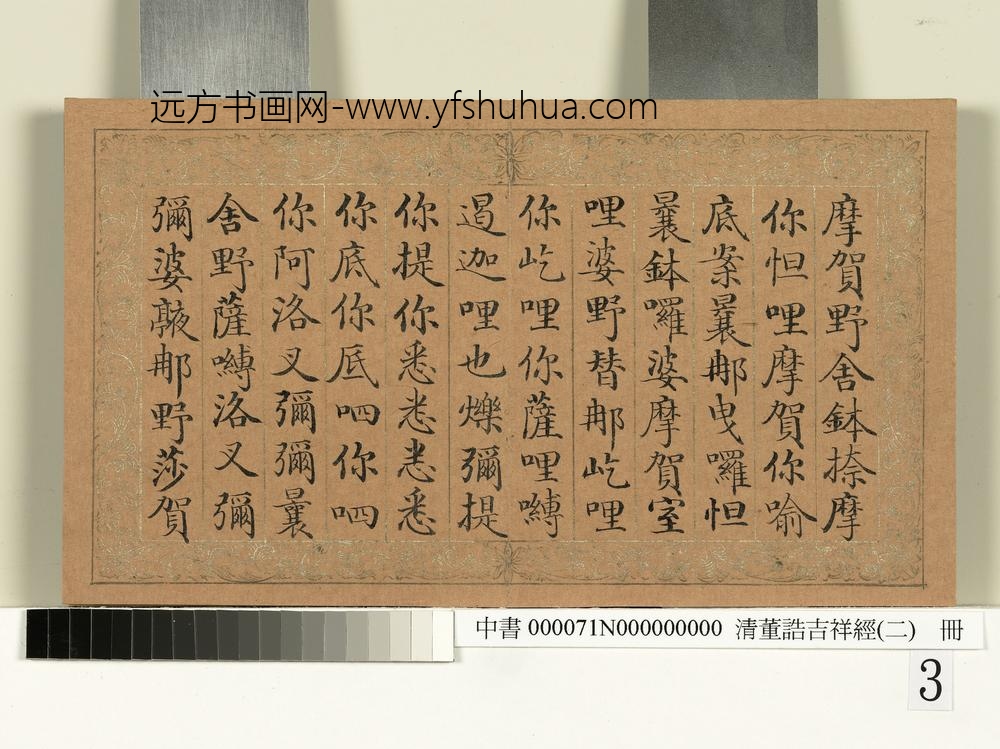 远方书画网-www.yfshuhua.com
摩賀野舍鉢捺摩
你怛哩摩賀你喻
底案曩郍曳囉怛
曩鉢囉婆摩賀室
哩婆野替郍屹哩
你屹哩你薩哩嚩
遏迦哩也爍彌提
你提你悉悉悉悉
你底你底呬你呬
你阿洛叉彌彌曩
舍野薩嚩洛叉彌
彌婆郍野莎賀
中書 000071N000000000 清董誥吉祥經(二) 冊
3